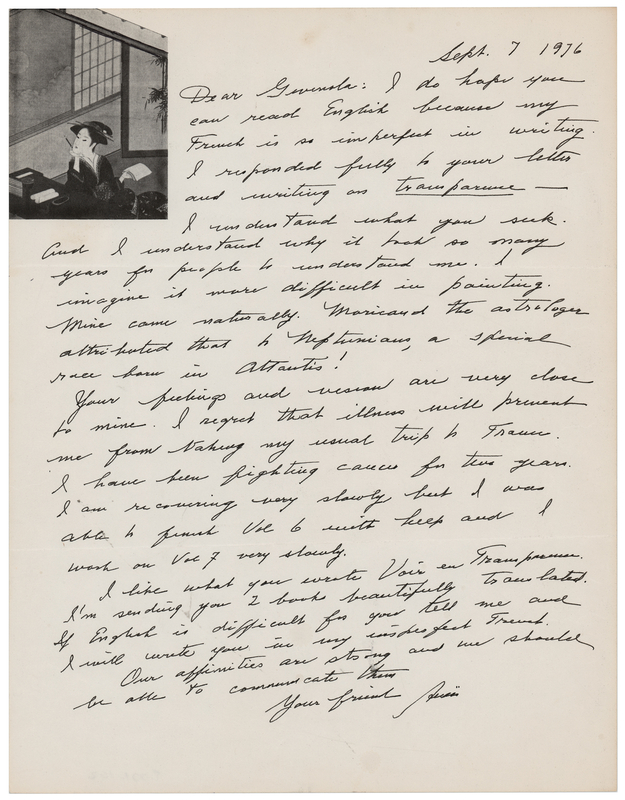 Sept. 7 1976
Dear Gwenola: I do hope you
can read English because my
French is so imperfect in writing.
I responded fully to your letter
and writing on transparence —
I understand what you seek.
And I understand why it took so many
years for people to understand me. I
imagine it more difficult in painting.
Mine came naturally. Moricand the astrologer
attributed that to Neptunians, a special
race born in Atlantis!
Your feelings and vision are very close
to mine. I regret that illness will prevent
me from taking my usual trip to France.
I have been fighting cancer for two years.
I am recovering very slowly but I was
able to finish Vol 6 with help and I
work on Vol 7 very slowly.
I like what you wrote Voir en Transparence.
I'm sending you 2 books beautifully translated.
If English is difficult for you tell me and
I will write you in my imperfect French.
Our affinities are strong and we should
be able to communicate then
Your friend Anaïs